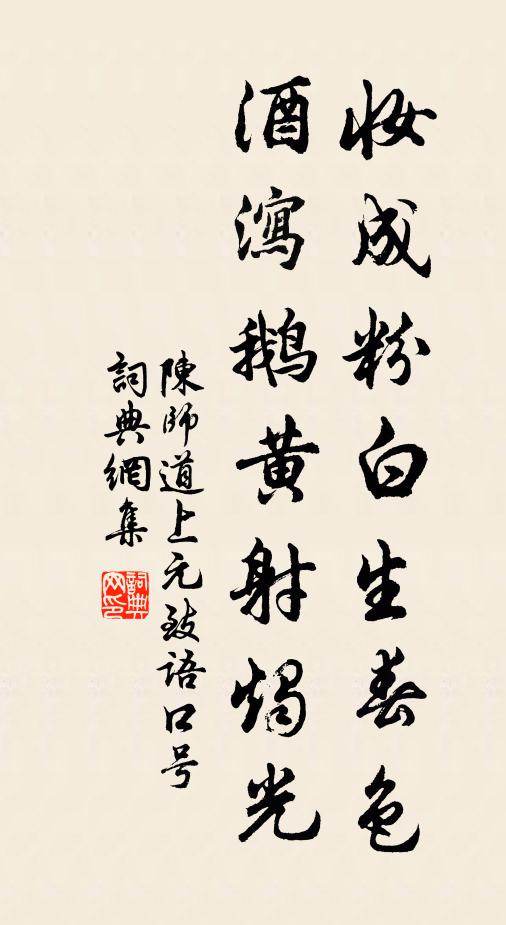 妝成粉白生春色
酒瀉鵝黄射燭光
陳師道上元致語口号
詞典網集
詞典网印